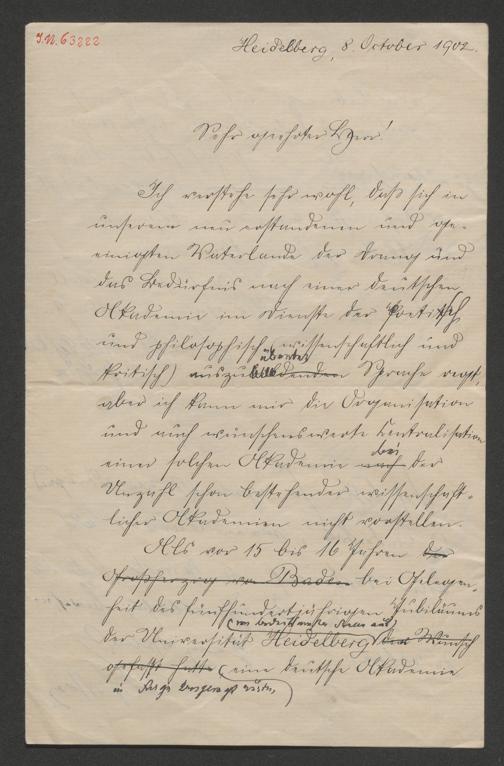 J.N. 63222
Heidelberg, 8. October 1902.
Sehr geehrter Herr!
Ich verstehe sehr wohl, daß sich in
unserem neu erstandenen und ge-
einigten Vaterlande der Drang und
das Bedürfnis nach einer deutschen
Akademie im Dienste der poetisch
und philosophisch, wissenschaftlich und
kritisch) auszubildenden Sprache regt,
aber ich kann mir die Organisation
und auch wünschenswerte Centralisation
einer solchen Akademie nach bei der
Unzahl schon bestehender wissenschaft-
licher Akademien nicht vorstellen.
Als vor 15 bis 16 Jahren der
Großherzog von Baden bei Gelegen-
heit des fünfhundertjährigen Jubiläums
der Universität Heidelberg den Wunsch
gefaßt hatte eine deutsche Akademie
in